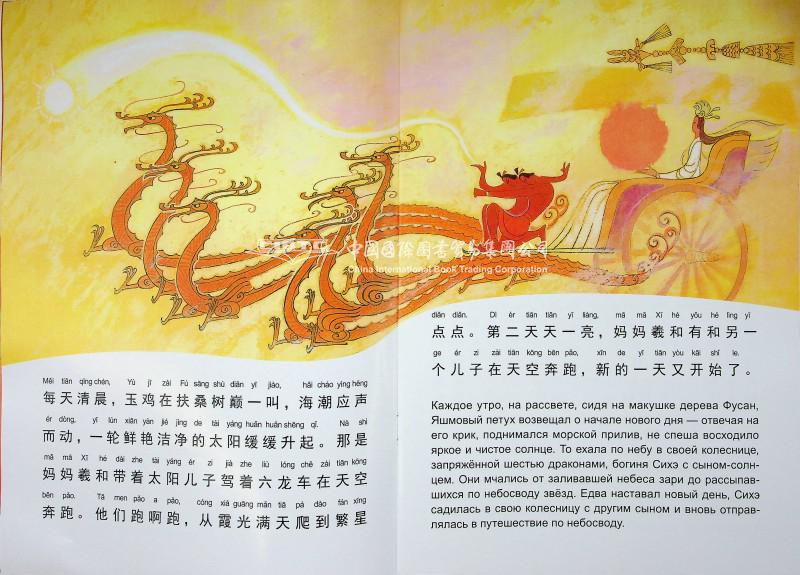 中国国际图书贸易集团公司
China International Book Trading Corporation
Měi tiān qīng chén, Yù jī zài Fú sāng shù diān yī jiào, hǎi cháo yìng héng
每天清晨，玉鸡在扶桑树巅一叫，海潮应声
ér dòng, yī lún xiān yàn jié jìng de tài yáng huǎn huǎn shēng qǐ. Nà shì
而动，一轮鲜艳洁净的太阳缓缓升起。那是
mā mā Xī hé dài zhe tài yáng ér zi jià zhe liù lóng chē zài tiān kōng
妈妈羲和带着太阳儿子驾着六龙车在天空
bēn pǎo. Tā men pǎo a pǎo, cóng xiá guāng mǎn tiā pá dào fán xīng
奔跑。他们跑啊跑，从霞光满天爬到繁星
diǎn diǎn. Dì èr tiān tiān yī liàng, mā mā Xī hé yòu hé lìng yī
点点。第二天天一亮，妈妈羲和有和另一
ge ér zi zài tiān kōng bēn pǎo, xīn de yī tiān yòu kāi shǐ le.
个儿子在天空奔跑，新的一天又开始了。
Каждое утро, на рассвете, сидя на макушке дерева Фусан,
Яшмовый петух возвещал о начале нового дня — отвечая на
его крик, поднимался морской прилив, не спеша восходило
яркое и чистое солнце. То ехала по небу в своей колеснице,
запряжённой шестью драконами, богиня Сихэ с сыном-солн-
цем. Они мчались от заливавшей небеса зари до рассыпав-
шихся по небосводу звёзд. Едва наставал новый день, Сихэ
садилась в свою колесницу с другим сыном и вновь отправ-
лялась в путешествие по небосводу.